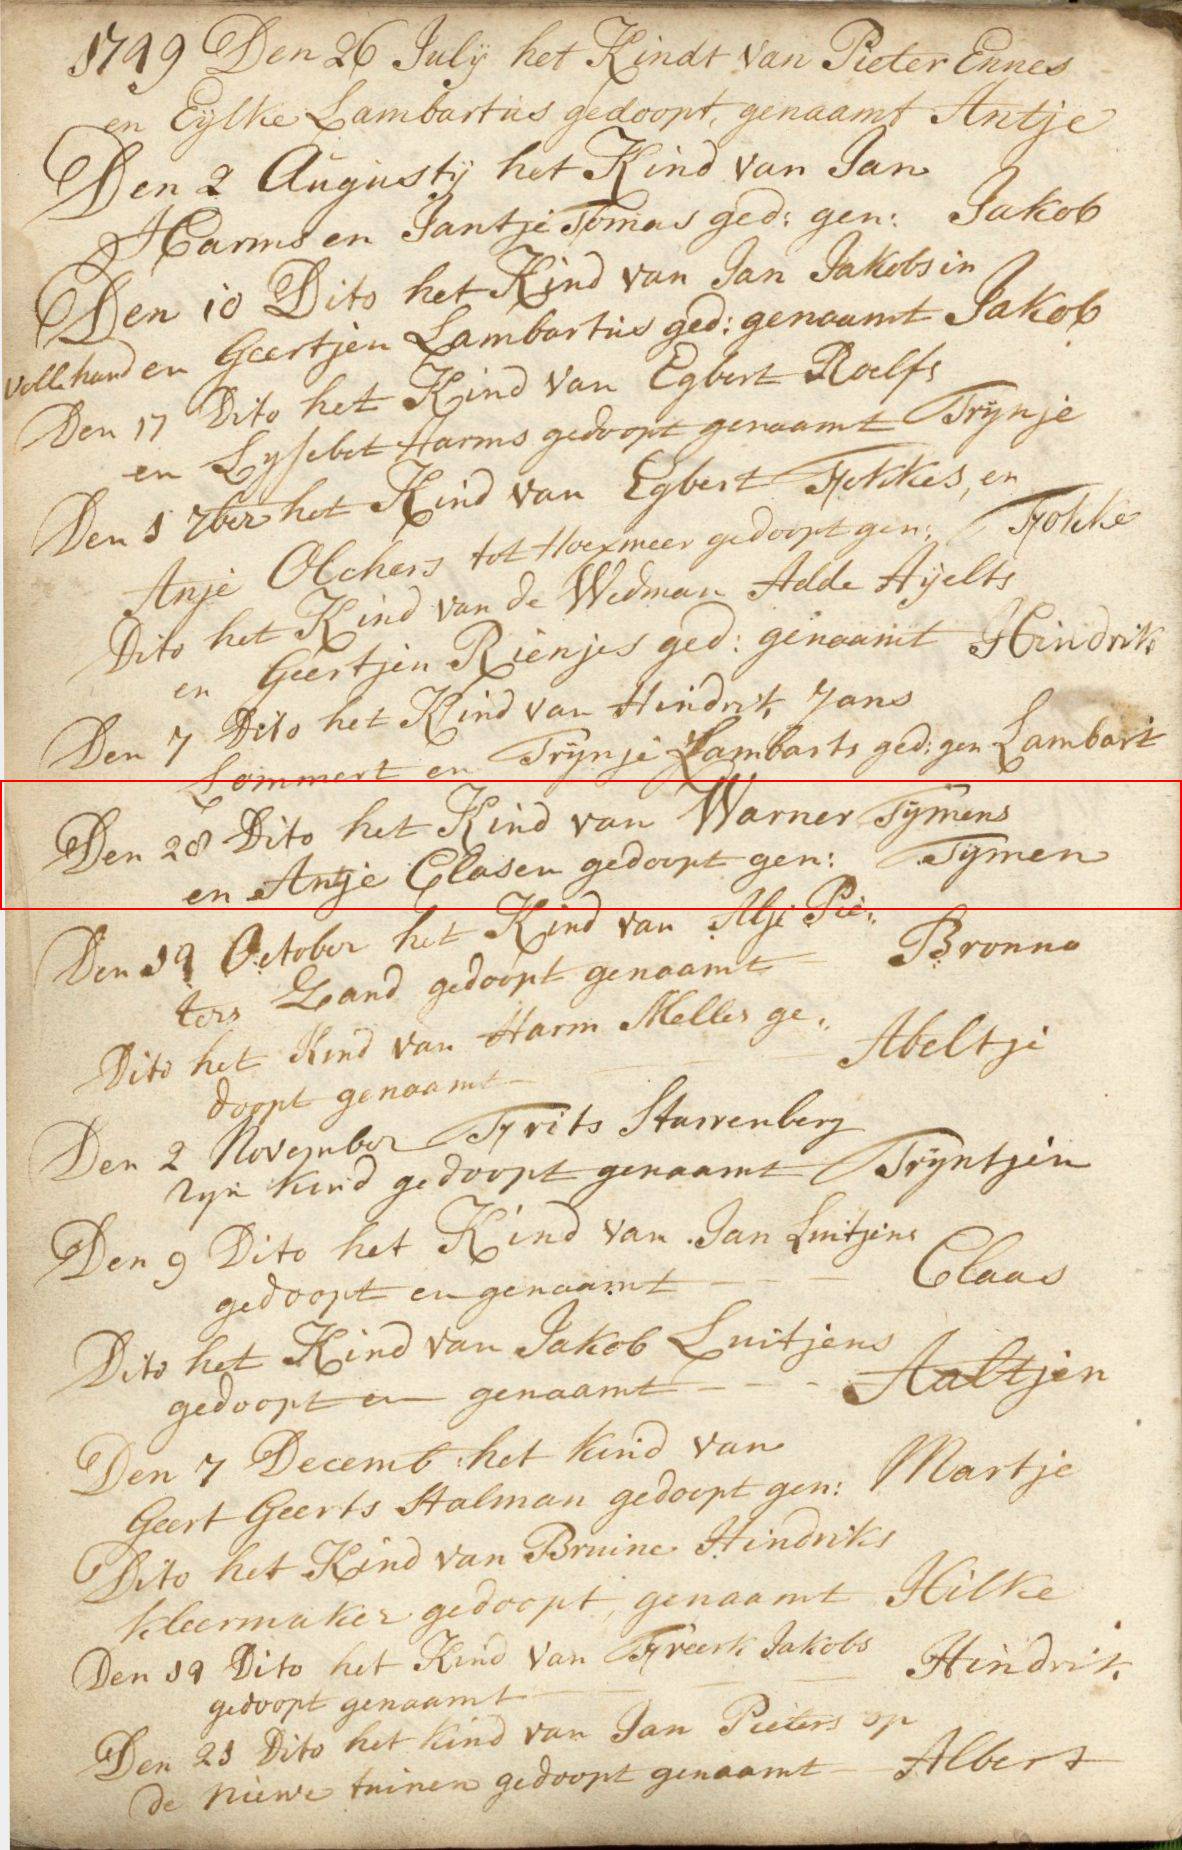 1749 Den 26 Julÿ het Kindt van Pieter Ennes
en Eÿlke Lambartus gedoopt, genaamt Antje
Den 2 Augustÿ het Kind van Jan
Harms en Jantje Tomas ged: gen: Jakob
Den 10 Dito het Kind van Jan Jakobs in
Vollehand en Geertjen Lambartus ged: genaamt Jakob
Den 17 Dito het Kind van Egbert Roelfs
en Lysebet Harms gedoopt genaamt Trÿnje
Den 1 7ber het Kind van Egbert Fokkes, en
Anje Olchers tot Hoexmeer gedoopt gen: Fokke
Dito het Kind van de Wedman Adde Aÿelts
en Geertjen Rienjes ged: genaamt Hindrik
Den 7 Dito het Kind van Hindrik Jans
Lommert en Trÿnje Lambarts ged: gen Lambart
Den 28 Dito het Kind van Warner Tÿmens
en Antje Clasen gedoopt gen: Tÿmen
Den 19 October het Kind van Alje Pie:
ters Zand gedoopt genaamt Bronno
Dito het Kind van Harm Melles ge:
doopt genaamt Abeltje
Den 2 November Frits Starrenberg
zyn kind gedoopt genaamt Trÿntjen
Den 9 Dito het Kind van Jan Luitjens
gedoopt en genaamt - - - Claas
Dito het Kind van Jakob Luitjens
gedoopt en genaamt - - - Aaltjen
Den 7 Decemb: het kind van
Geert Geerts Stalman gedoopt gen: Martje
Dito het Kind van Bruine Hindriks
kleermaker gedoopt, genaamt Hilke
Den 19 Dito het Kind van Freerk Jakobs
gedoopt genaamt Hindrik
Den 21 Dito het kind van Jan Pieters op
de niewe tuinen gedoopt genaamt Albert